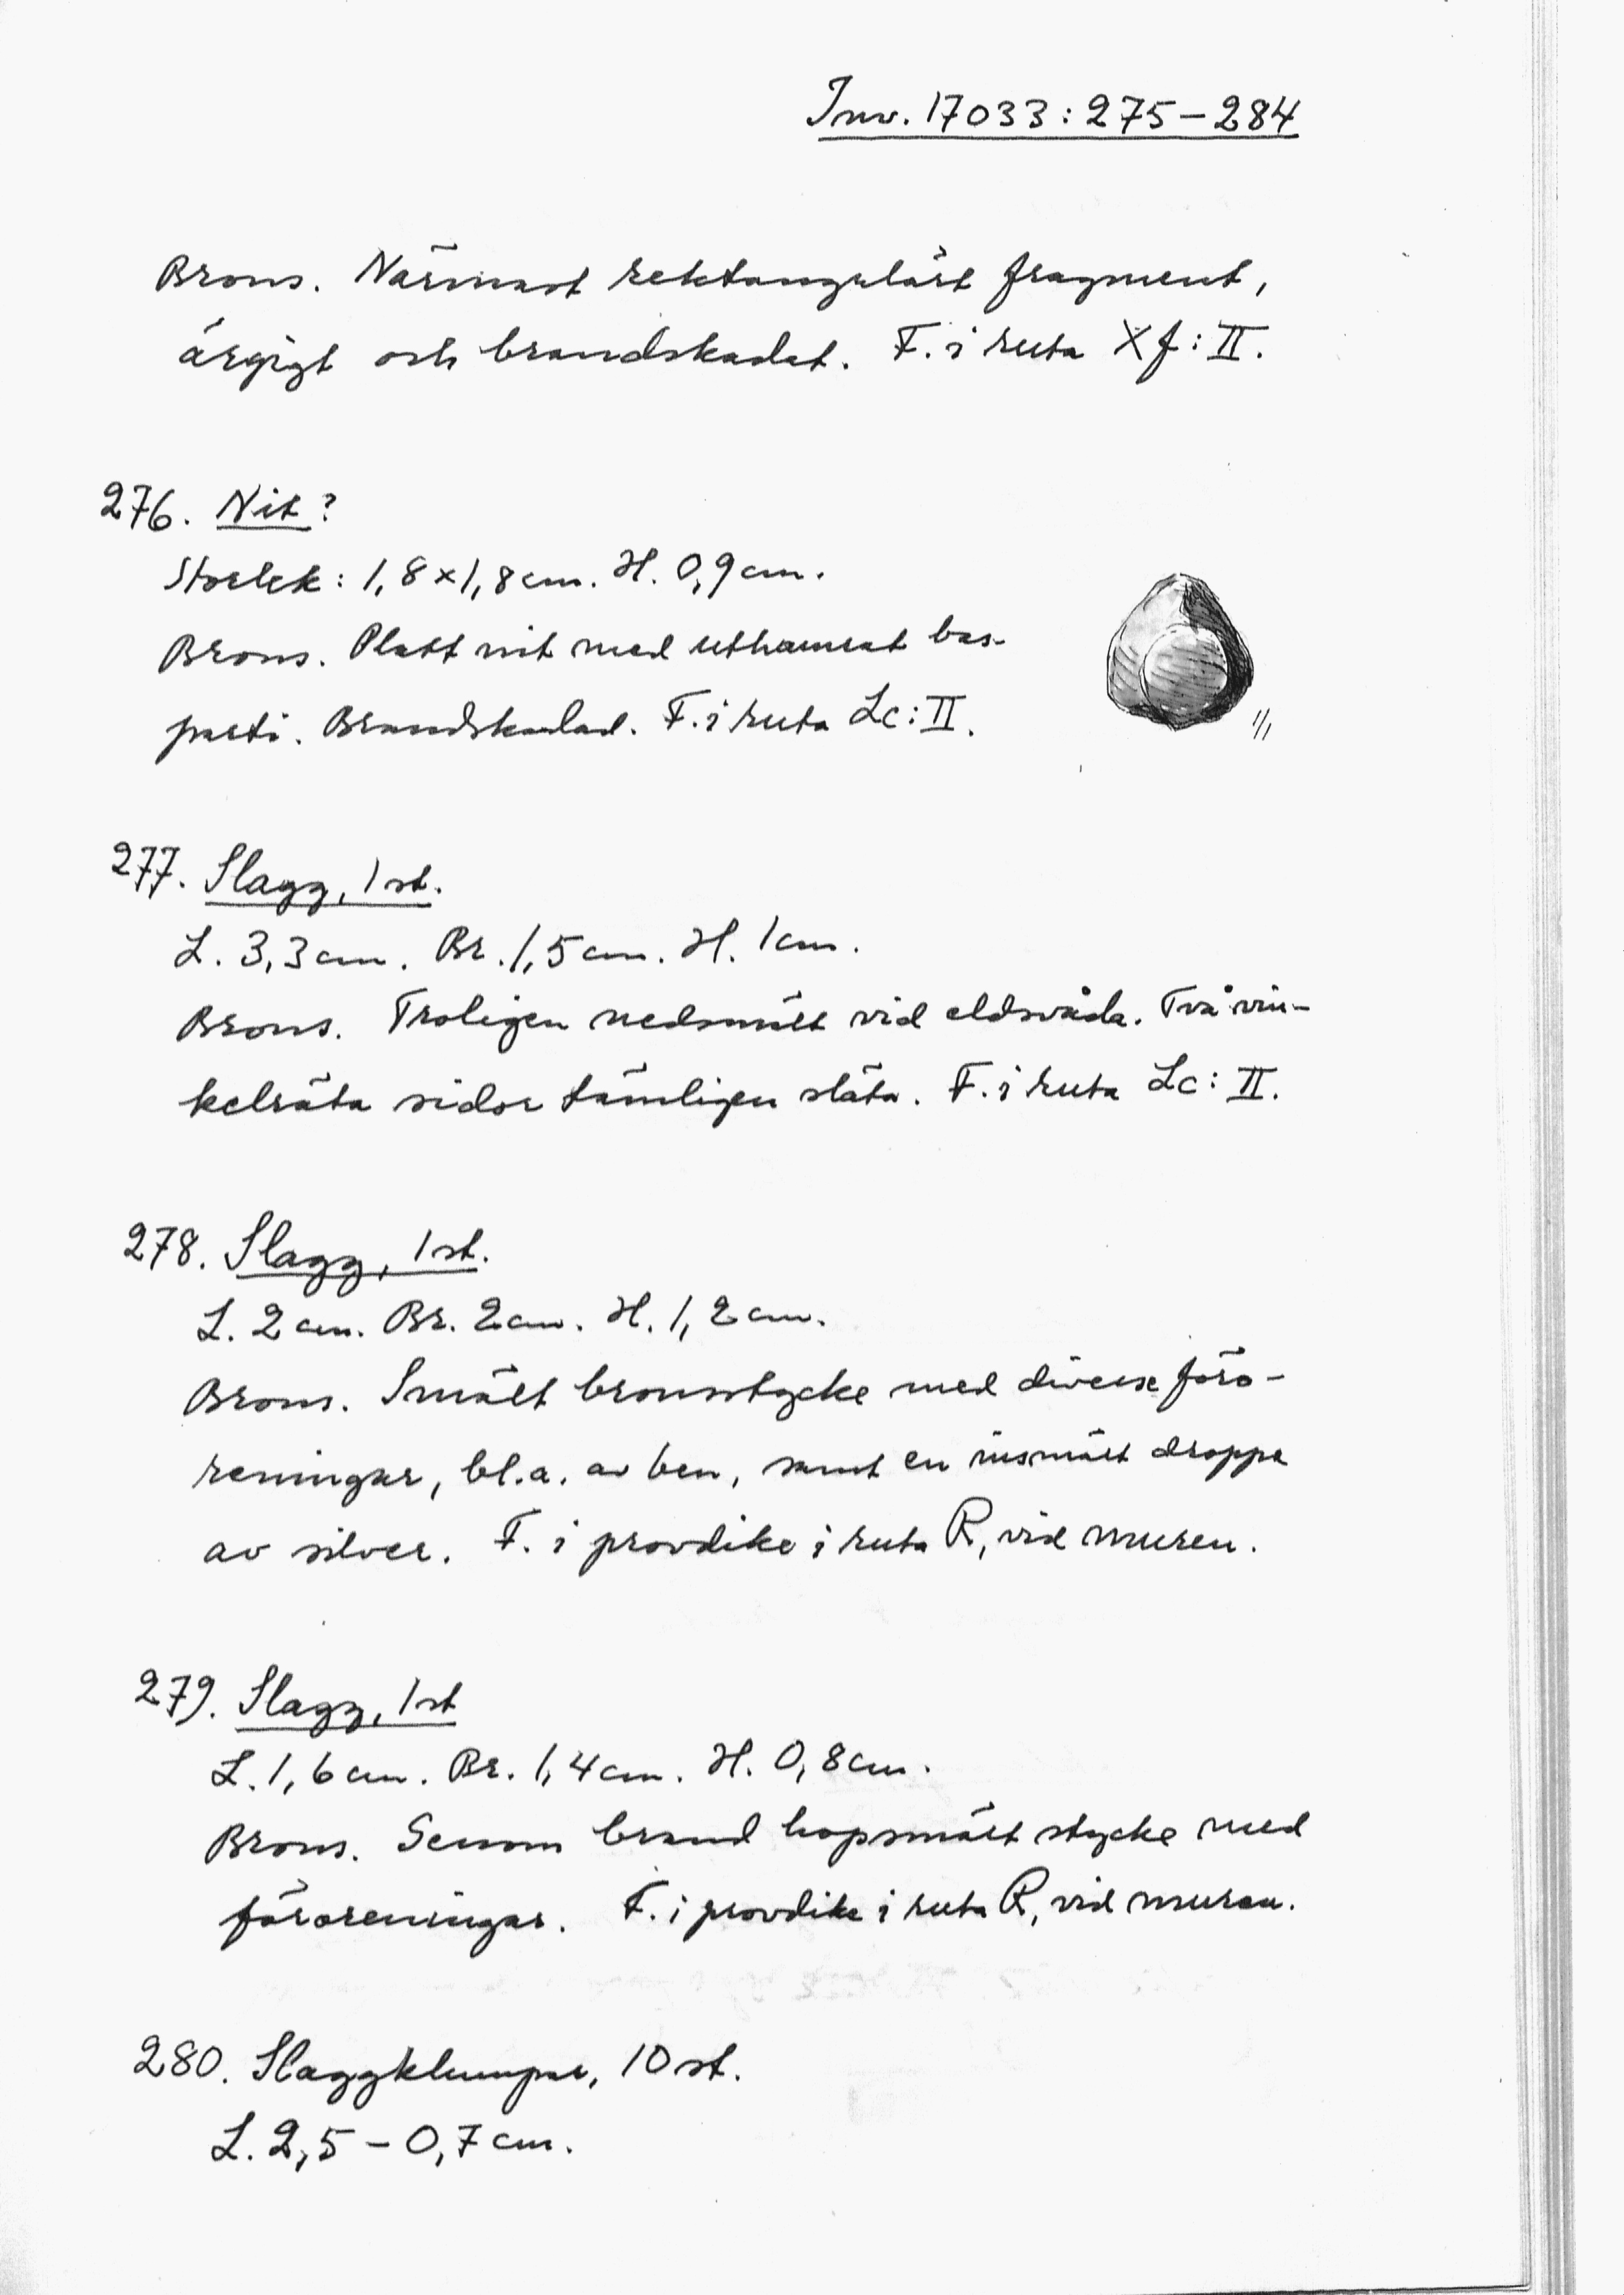 Inv. 17033:275–284
Brons. Närmast rektangulärt fragment,
ärgigt och brandskadat. F. i ruta Xf:II.
276. Nit?
Storlek: 1,8×1,8 cm. H. 0,9 cm.
Brons. Platt nit med uthamrat bas-
parti. Brandskadad. F. i ruta Lc:II.
1/1
277. Slagg, 1 st.
L. 3,3 cm. Br. 1,5 cm. H. 1 cm.
Brons. Troligen nedsmält vid eldsvåda. Två vin-
kelräta sidor tämligen släta. F. i ruta Lc:II.
278. Slagg, 1 st.
L. 2 cm. Br. 2 cm. H. 1,2 cm.
Brons. Smält bronsstycke med diverse föro-
reningar, bl.a. av ben, samt en insmält droppe
av silver. F. i provdike i ruta R, vid muren.
279. Slagg, 1 st
L. 1,6 cm. Br. 1,4 cm. H. 0,8 cm.
Brons. Genom brand hopsmält stycke med
föroreningar. F. i provdike i ruta R, vid muren.
280. Slaggklumpar, 10 st.
L. 2,5 – 0,7 cm.